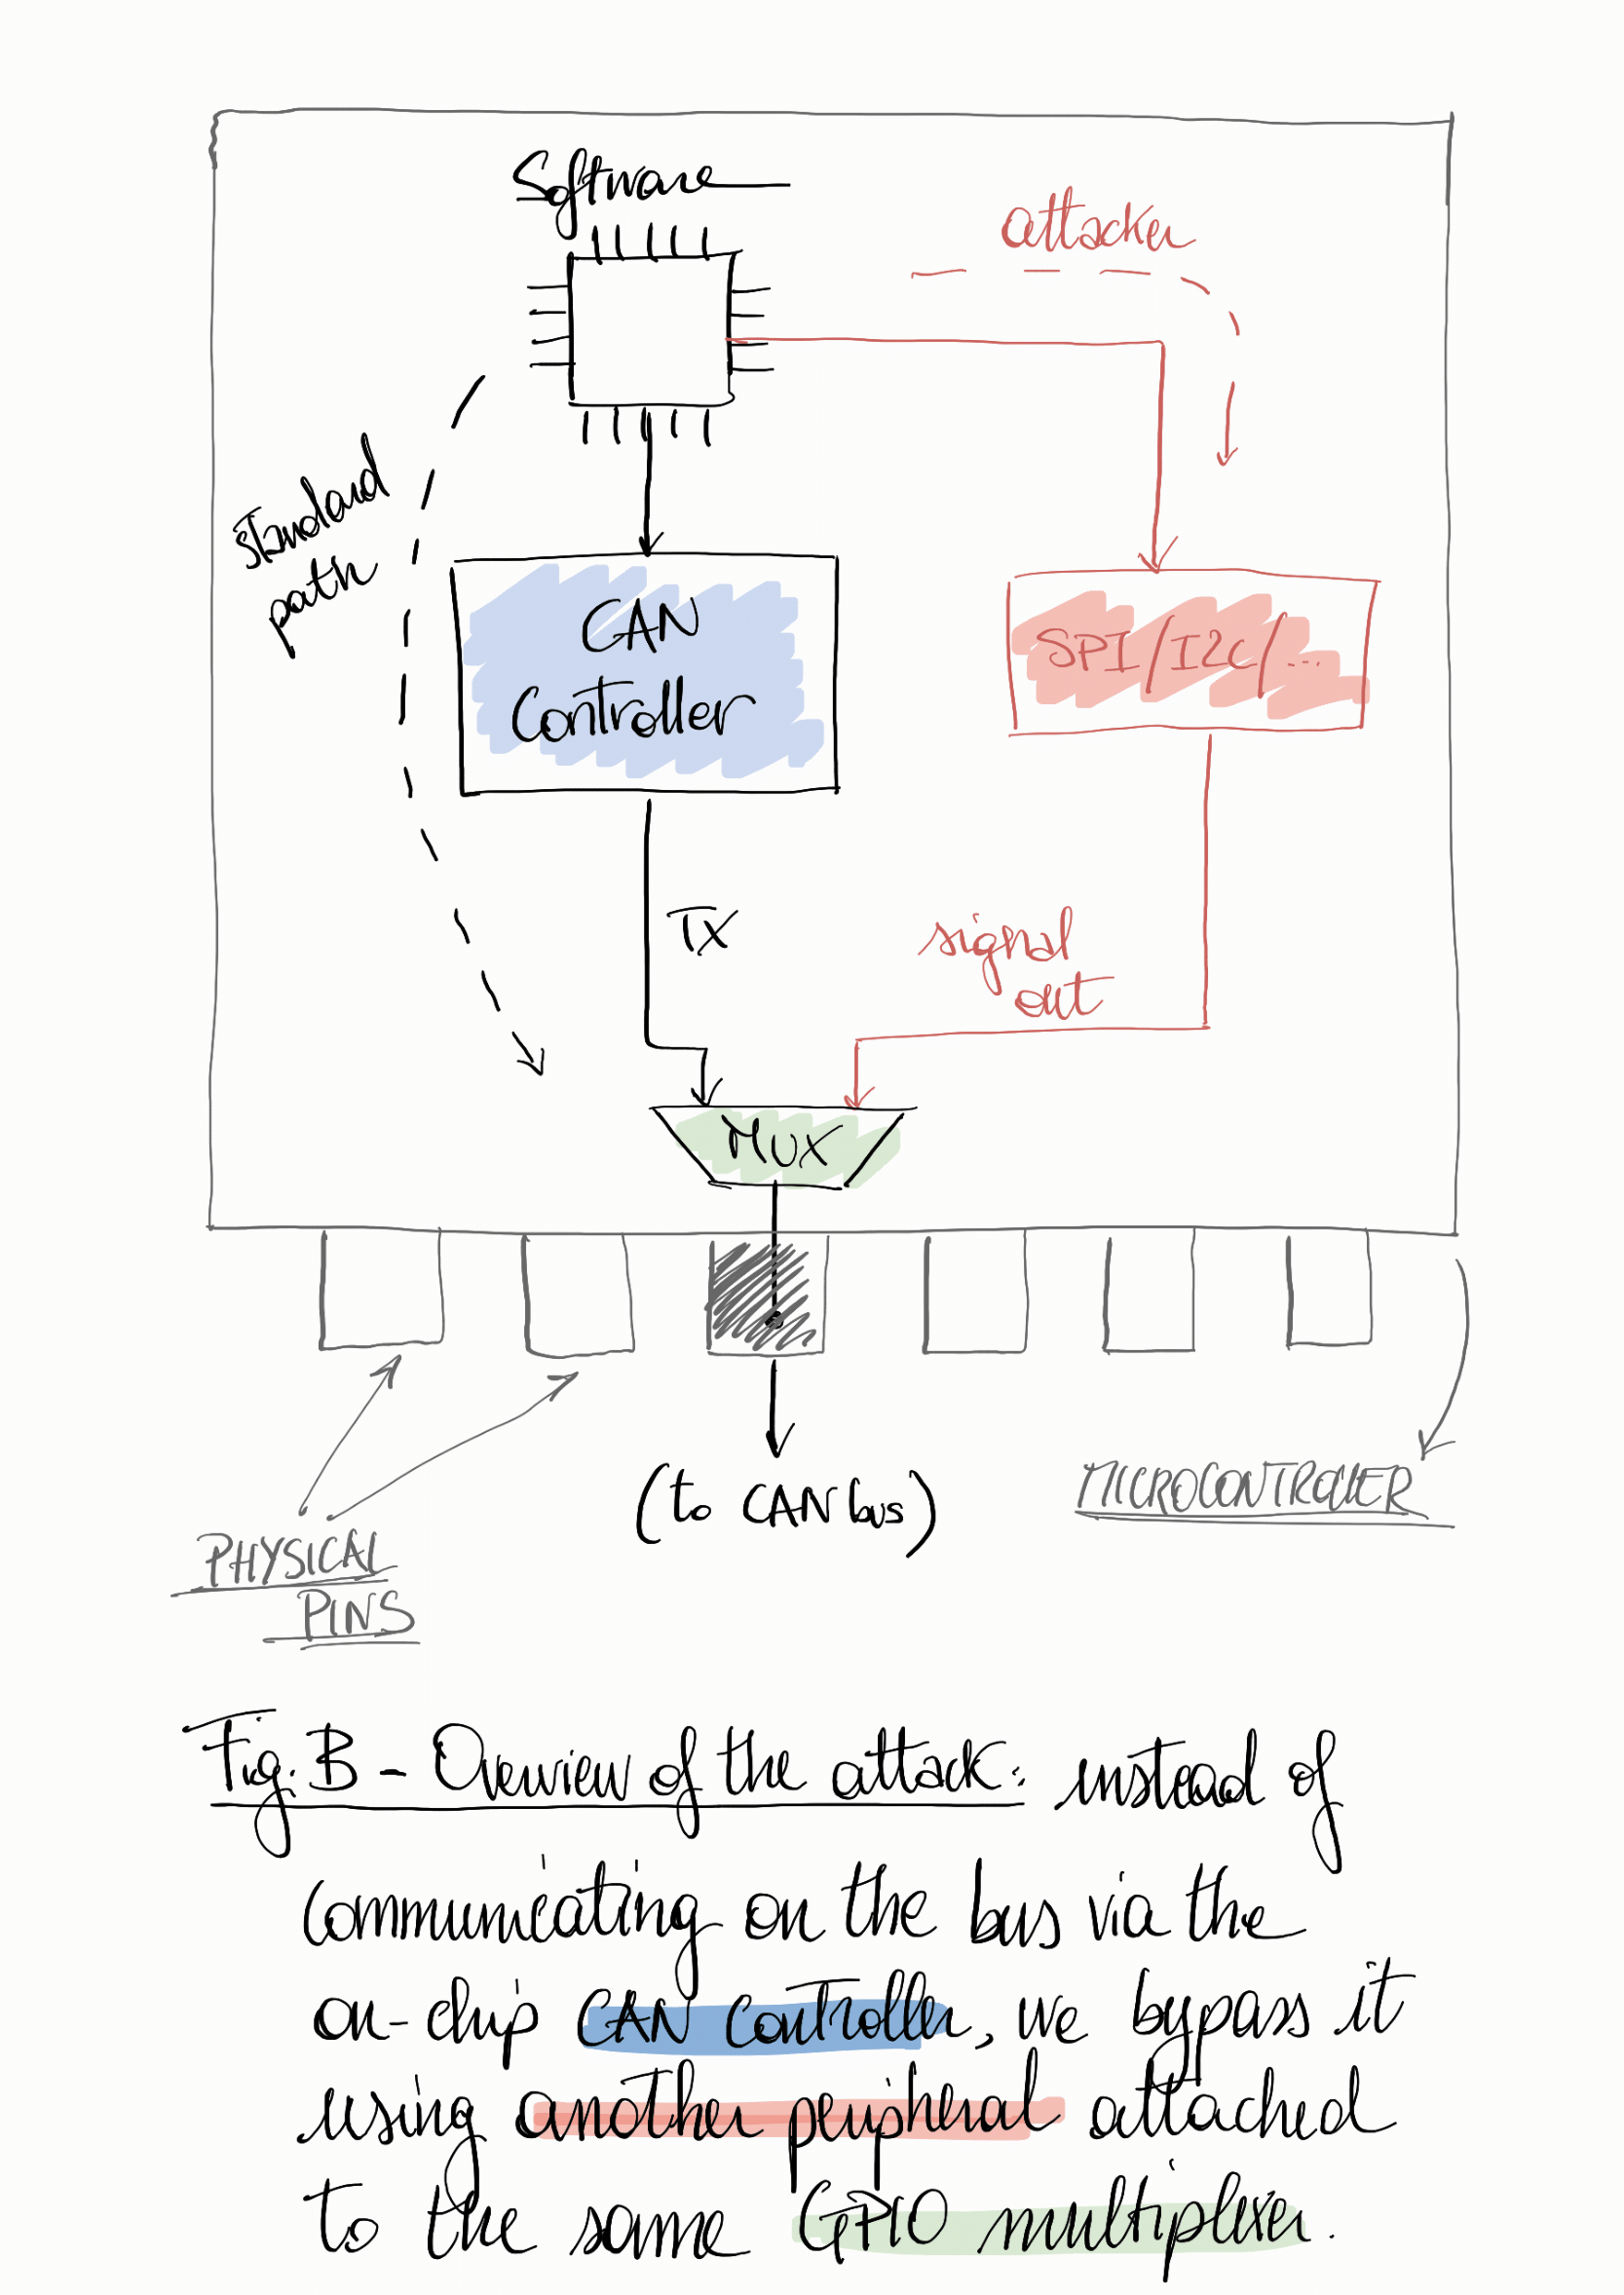 Software
attacker
standard
path
CAN
Controller
SPI/I2C/...
TX
signal
out
MUX
(to CAN bus)
MICROCONTROLLER
PHYSICAL
PINS
Fig. B - Overview of the attack: instead of
communicating on the bus via the
on-chip CAN Controller, we bypass it
using another peripheral attached
to the same GPIO multiplexer.